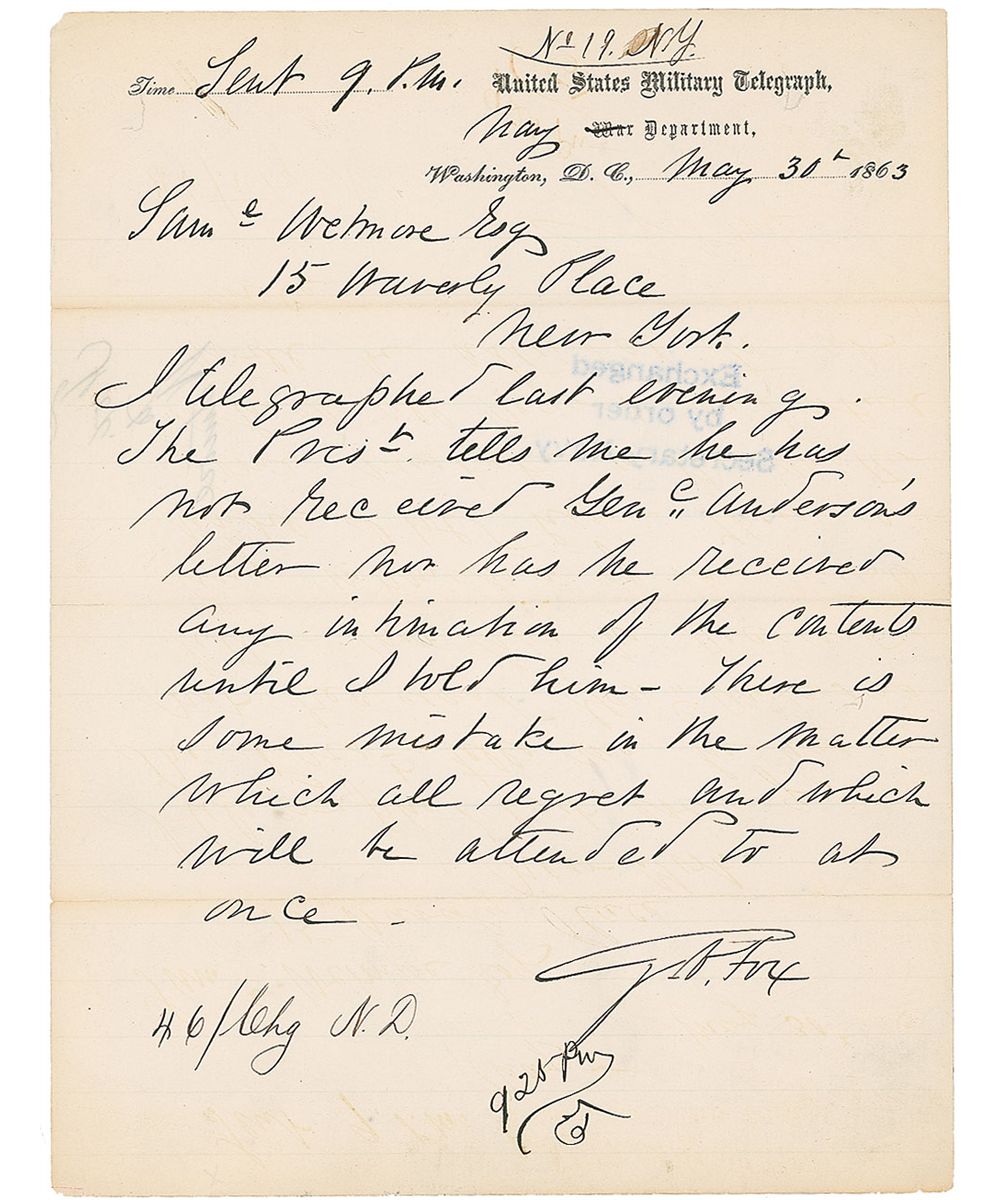 No 19. N.Y.
Time Sent 9. P.M. United States Military Telegraph,
Navy War Department,
Washington, D. C., May 30t 1863
Saml Wetmore Esq
15 Waverly Place
New York.
I telegraphed last evening.
The Prest. tells me he has
not received Genl Anderson's
letter nor has he received
any intimation of the contents
until I told him - There is
some mistake in the matter
which all regret and which
will be attended to at
once -
G.V. Fox
46/Chg N.D.
925 Pm
Exchanged
by order
Secretary Navy